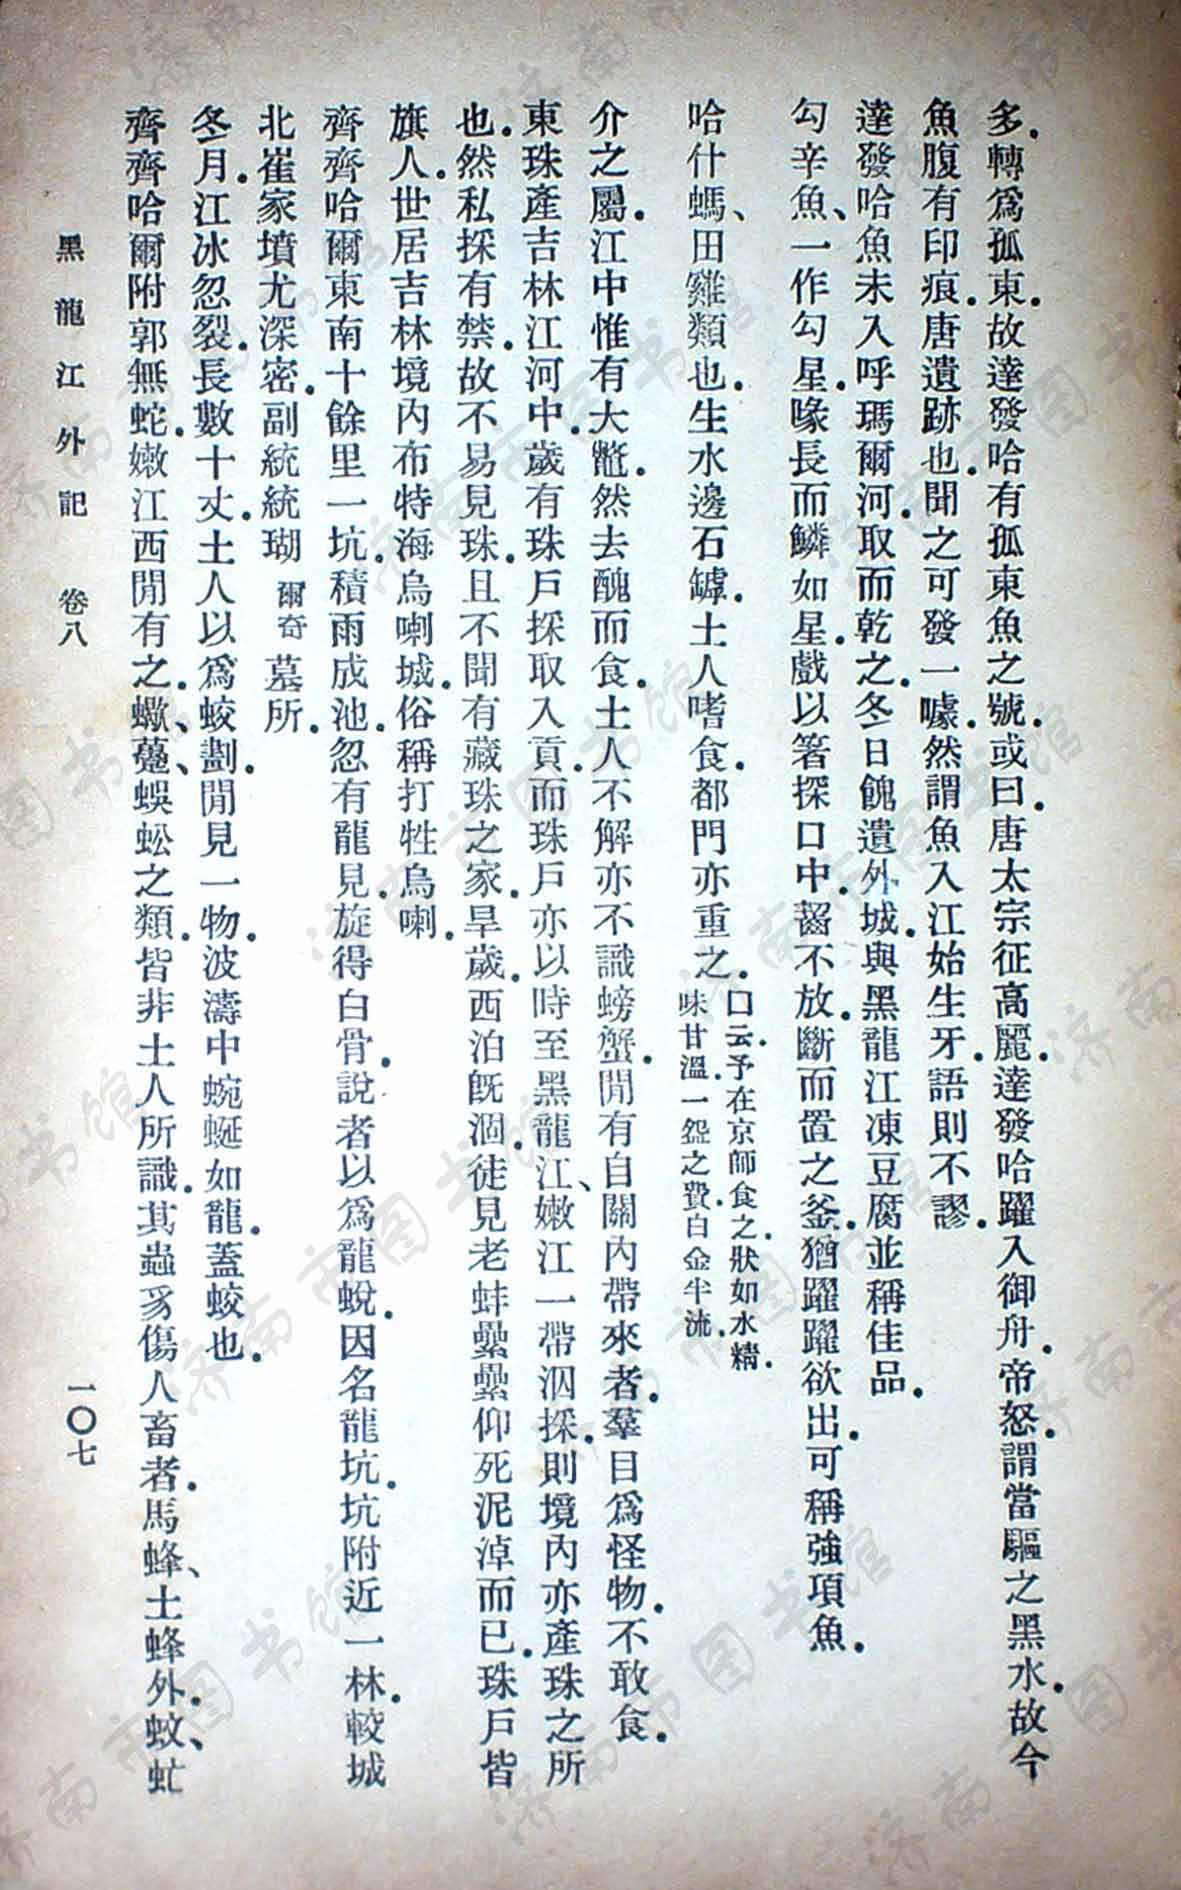 多．轉爲孤東．故達發哈有孤東魚之號．或曰．唐太宗征高麗．達發哈躍入御舟．帝怒．謂當驅之黑水．故今
魚腹有印痕．唐遺跡也．聞之可發一噱．然謂魚入江始生牙．語則不謬．
達發哈魚未入呼瑪爾河．取而乾之．冬日餽遺外城．與黑龍江凍豆腐並稱佳品．
勾辛魚、一作勾星．喙長而鱗如星．戲以箸探口中．齧不放．斷而置之釜．猶躍躍欲出．可稱強項魚．
哈什螞、田雞類也．生水邊石罅．土人嗜食．都門亦重之．口云．予在京師食之．狀如水精．
味甘溫．一盌之費．白金半流．
介之屬．江中惟有大鼈．然去醜而食．土人不解．亦不識螃蟹．閒有自關內帶來者．羣目爲怪物．不敢食．
東珠產吉林江河中．歲有珠戶採取入貢．而珠戶亦以時至黑龍江、嫩江一帶泅採．則境內亦產珠之所
也．然私採有禁．故不易見珠．且不聞有藏珠之家．旱歲．西泊旣涸．徒見老蚌纍纍仰死泥淖而已．珠戶皆
旗人．世居吉林境內布特海烏喇城．俗稱打牲烏喇．
齊齊哈爾東南十餘里一坑．積雨成池．忽有龍見．旋得白骨．說者以爲龍蛻．因名龍坑．坑附近一林．較城
北崔家墳尤深密．副統統瑚爾奇墓所．
冬月．江冰忽裂．長數十丈．土人以爲蛟劃．閒見一物．波濤中蜿蜒如龍．蓋蛟也．
齊齊哈爾附郭無蛇．嫩江西閒有之．蠍、蠆、蜈蚣之類．皆非土人所識．其蟲豸傷人畜者．馬蜂、土蜂外．蚊、虻
黑龍江外記　卷八　一〇七
济南市图书馆